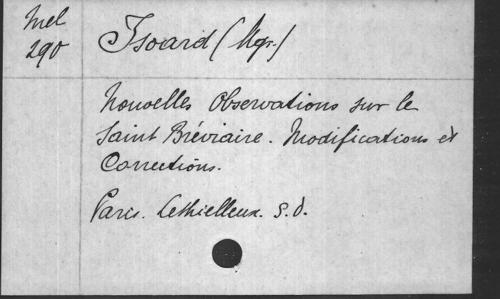 Mel
290
Isoard (Mgr.)
Nouvelles Observations sur le
Saint Bréviaire. Modifications et
Corrections.
Paris. Lethielleux. S.d.